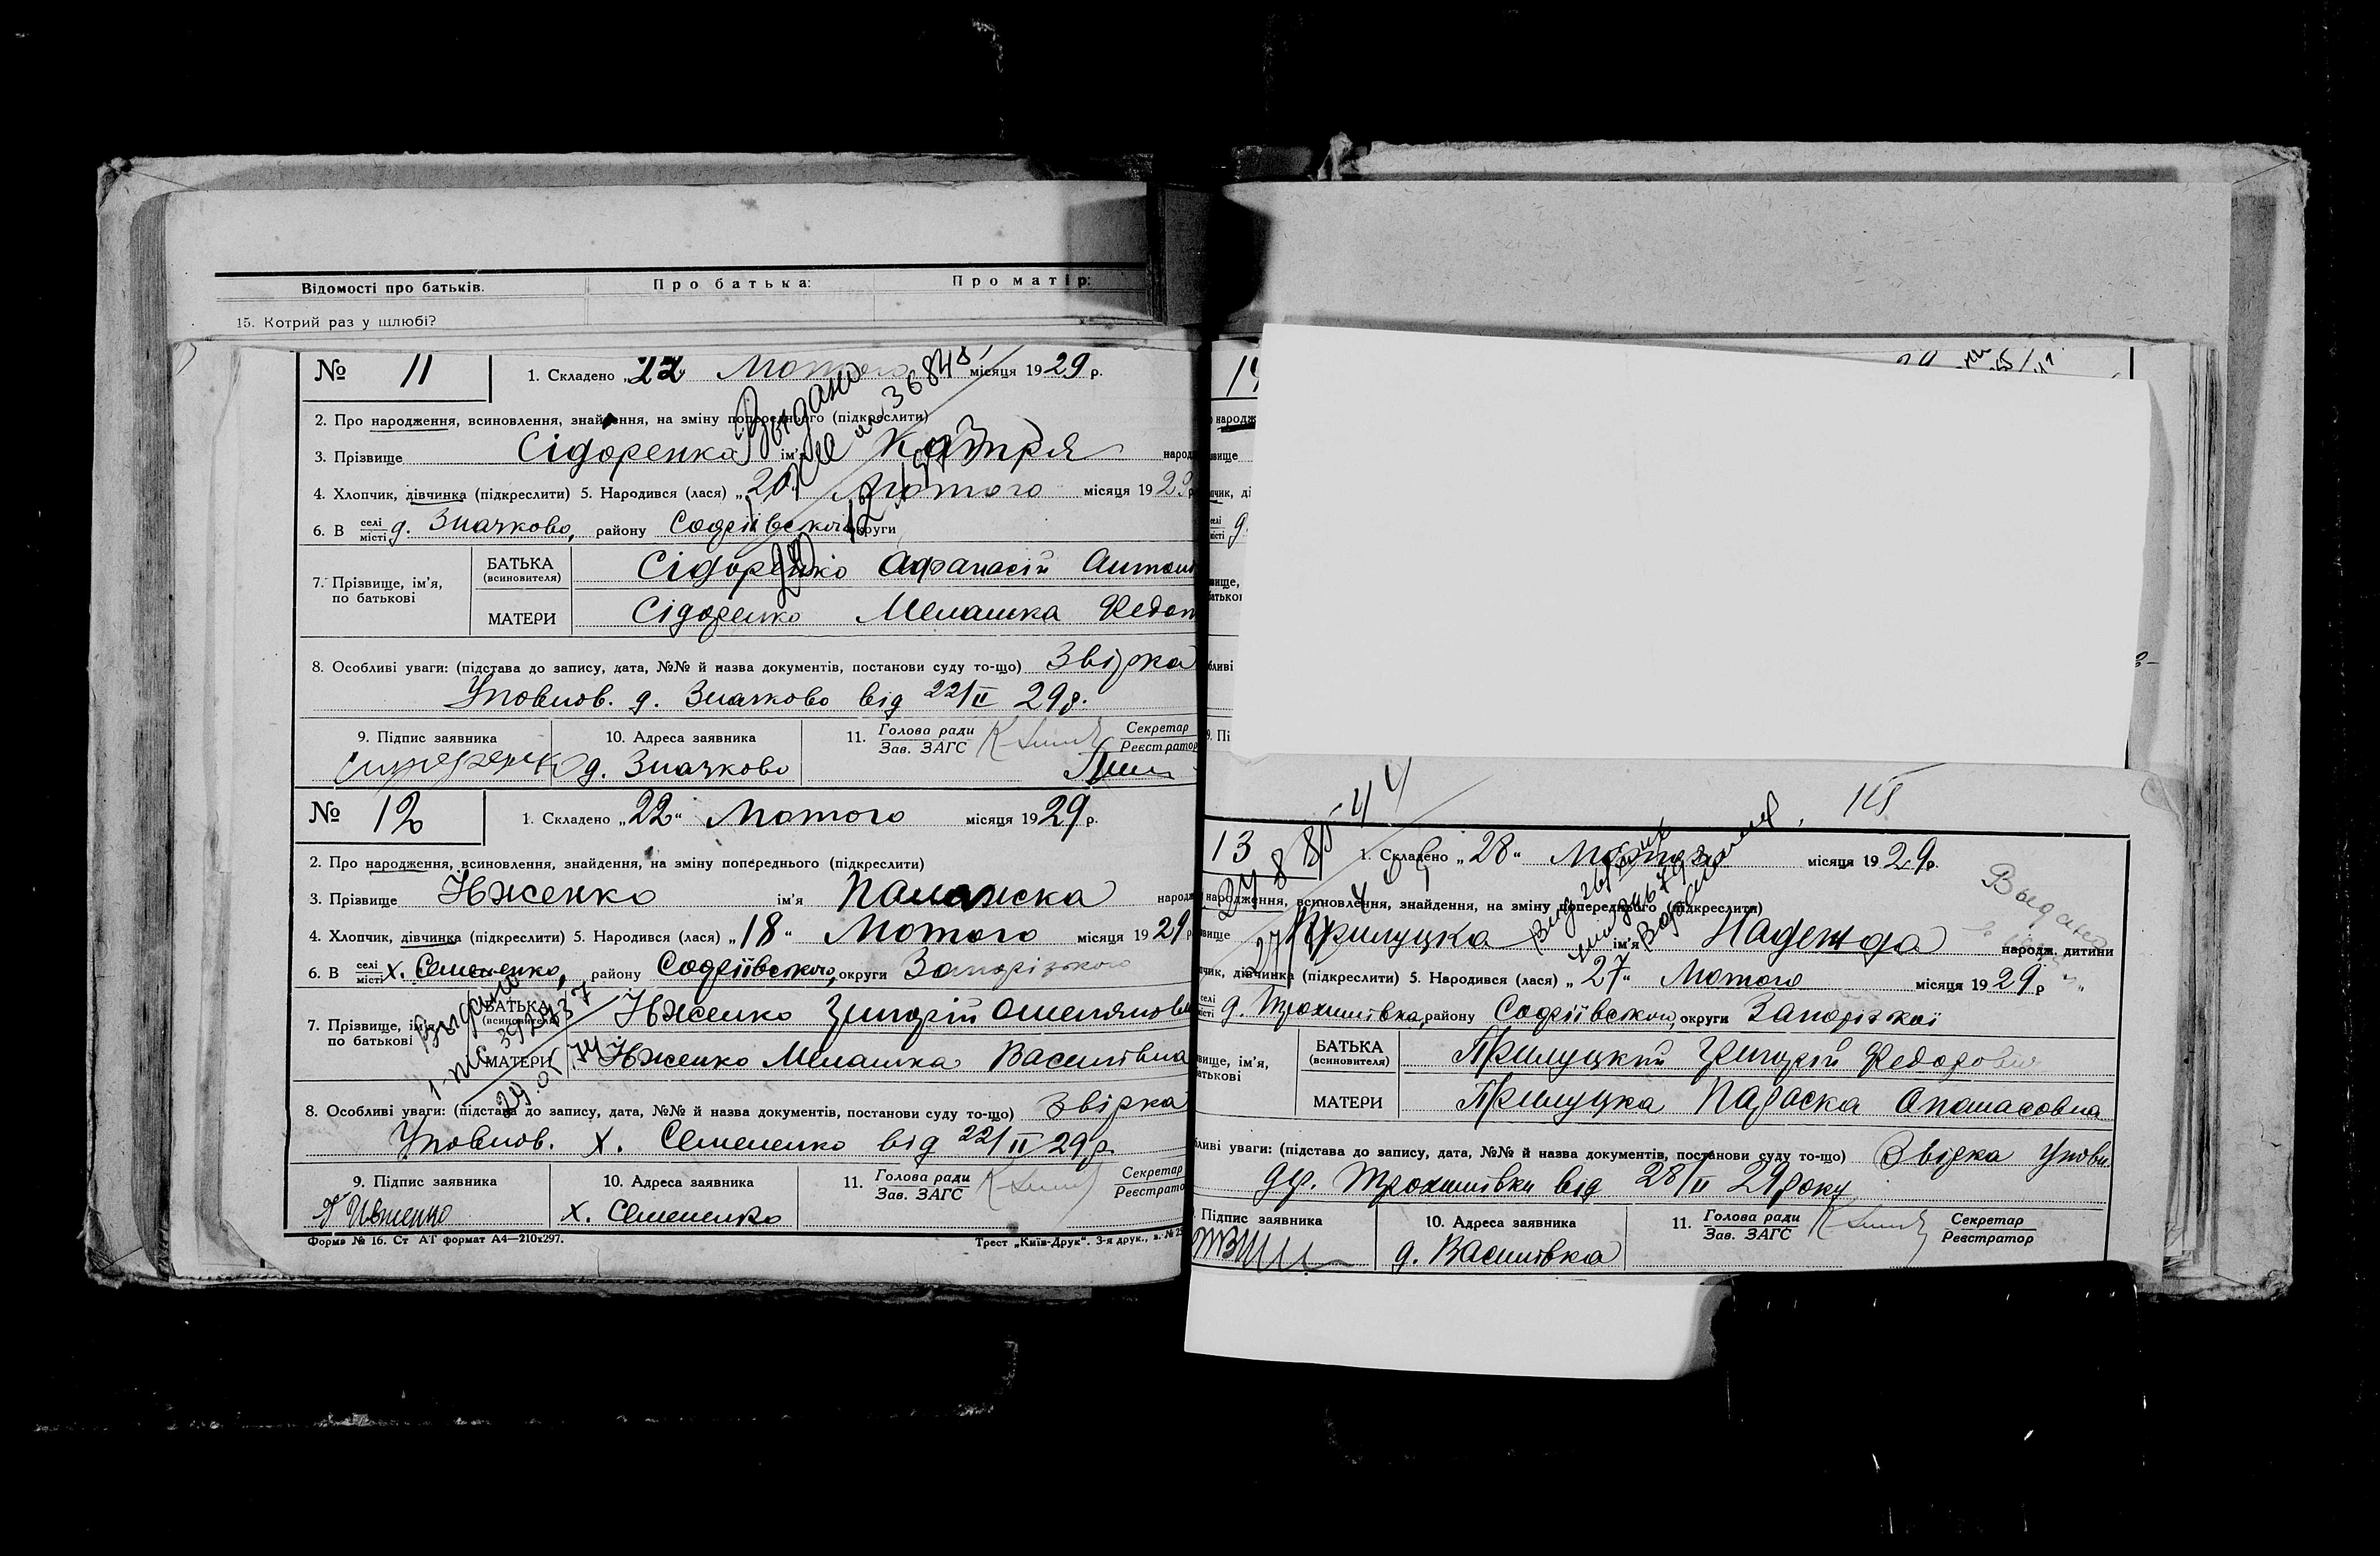 Відомості про батьків. Про батька: Про матір:
15. Котрий раз у шлюбі?
№ 11 1. Складено „22“ Лютого місяця 1929 р.
2. Про народження, всиновлення, знайдення, на зміну попереднього (підкреслити)
3. Прізвище Сідоренко ім'я Катря народ
4. Хлопчик, дівчинка (підкреслити) 5. Народився (лася) „20“ Лютого місяця 1929 р
6. В селі місті д. Значково, району Софіївського округи
7. Прізвище, ім'я, по батькові
БАТЬКА (всиновителя) Сідоренко Афанасій Антон
МАТЕРИ Сідоренко Мелашка Федот
8. Особливі уваги: (підстава до запису, дата, №№ й назва документів, постанови суду то-що) Звірка
Уповнов. д. Значково від 22/II 29р.
9. Підпис заявника 10. Адреса заявника 11. Голова ради Зав. ЗАГС Секретар Реєстратор
д. Значково
Выдано
№ 12 1. Складено „22“ Лютого місяця 1929 р.
2. Про народження, всиновлення, знайдення, на зміну попереднього (підкреслити)
3. Прізвище Ївженко ім'я Палажка народ
4. Хлопчик, дівчинка (підкреслити) 5. Народився (лася) „18“ Лютого місяця 1929 р
6. В селі місті х. Семененко, району Софіївського, округи Запорізького
7. Прізвище, ім'я, по батькові
БАТЬКА (всиновителя) Ївженко Григорій Омелянов
МАТЕРИ Ївженко Мелашка Василівна
Выдано
8. Особливі уваги: (підстава до запису, дата, №№ й назва документів, постанови суду то-що) Звірка
Уповнов. х. Семененко від 22/II 29р.
9. Підпис заявника 10. Адреса заявника 11. Голова ради Зав. ЗАГС Секретар Реєстрато
х. Семененко
Форма № 16. Ст АТ формат А4—210x297. Трест „Київ-Друк“. 3-я друк.,
14
народж
звище
115
13 1. Складено „28“ Лютого місяця 1929 р.
народження, всиновлення, знайдення, на зміну попереднього (підкреслити)
Выдано
вище Прилуцка ім'я Надежда народж. дитини
пчик, дівчинка (підкреслити) 5. Народився (лася) „27“ Лютого місяця 1929 р
селі місті д. Трохимівка, району Софіївського, округи Запорізкої
вище, ім'я, атькові
БАТЬКА (всиновителя) Прилуцкий Григорій Федорович
МАТЕРИ Прилуцка Параска Опанасовна
бливі уваги: (підстава до запису, дата, №№ й назва документів, постанови суду то-що) Звірка Уповн
др. Трохимівки від 28/II 29 року
Підпис заявника 10. Адреса заявника 11. Голова ради Зав. ЗАГС Секретар Реєстратор
д. Василівка